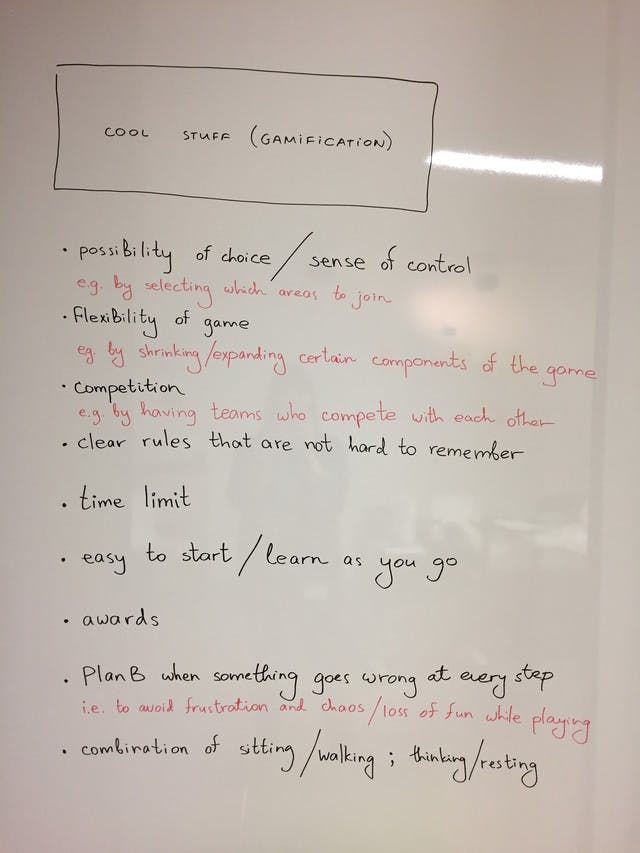 COOL STUFF (GAMiFiCATiON)
• possiBility of choice / sense of control
e.g. by selecting which areas to join
• Flexibility of game
eg. by shrinking/expanding certain components of the game
• Competition
e.g. by having teams who compete with each other
• clear rules that are not hard to remember
• time limit
• easy to start / learn as you go
• awards
• Plan B when something goes wrong at every step
i.e. to avoid frustration and chaos/loss of fun while playing
• combination of sitting/walking ; thinking/resting